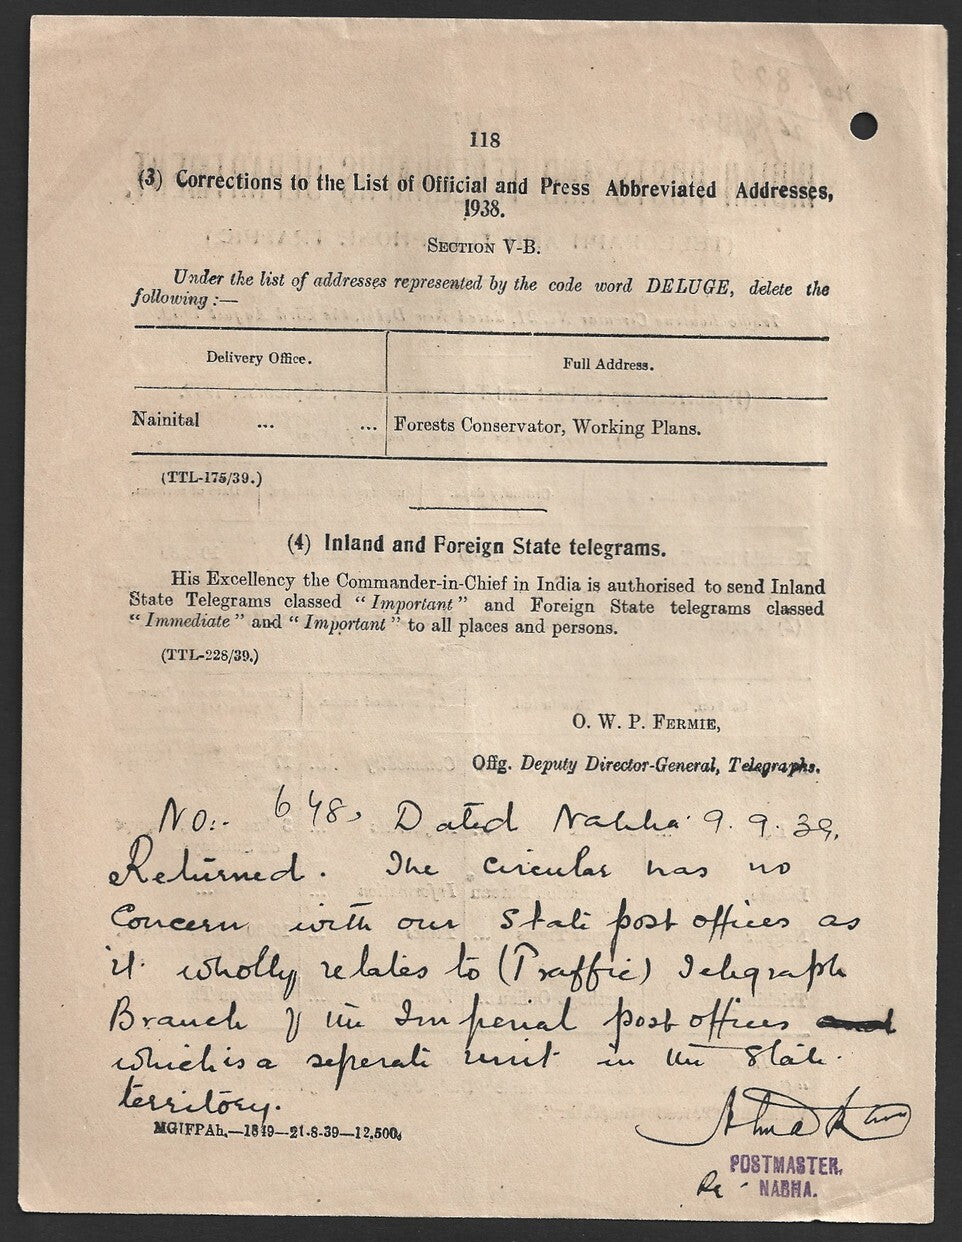 118
(3) Corrections to the List of Official and Press Abbreviated Addresses,
1938.
SECTION V-B.
Under the list of addresses represented by the code word DELUGE, delete the
following :—
Delivery Office.
Full Address.
Nainital ... ...
Forests Conservator, Working Plans.
(TTL-175/39.)
(4) Inland and Foreign State telegrams.
His Excellency the Commander-in-Chief in India is authorised to send Inland
State Telegrams classed “ Important ” and Foreign State telegrams classed
“ Immediate ” and “ Important ” to all places and persons.
(TTL-228/39.)
O. W. P. FERMIE,
Offg. Deputy Director-General, Telegraphs.
No:- 648, Dated Nabha 9. 9. 39.
Returned. The circular has no
concern with our State post offices as
it wholly relates to (Traffic) Telegraph
Branch of the Imperial post offices and
which is a seperate unit in the State
territory.
MGIFPAh.—1849—21-8-39—12,500.
POSTMASTER,
NABHA.